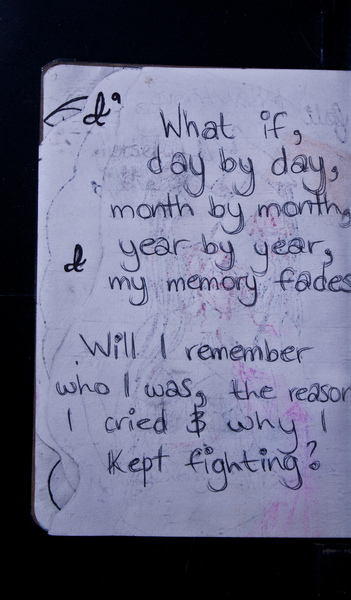 What if,
day by day,
month by month,
year by year,
my memory fades
Will I remember
who I was, the reason
I cried & why I
kept fighting?